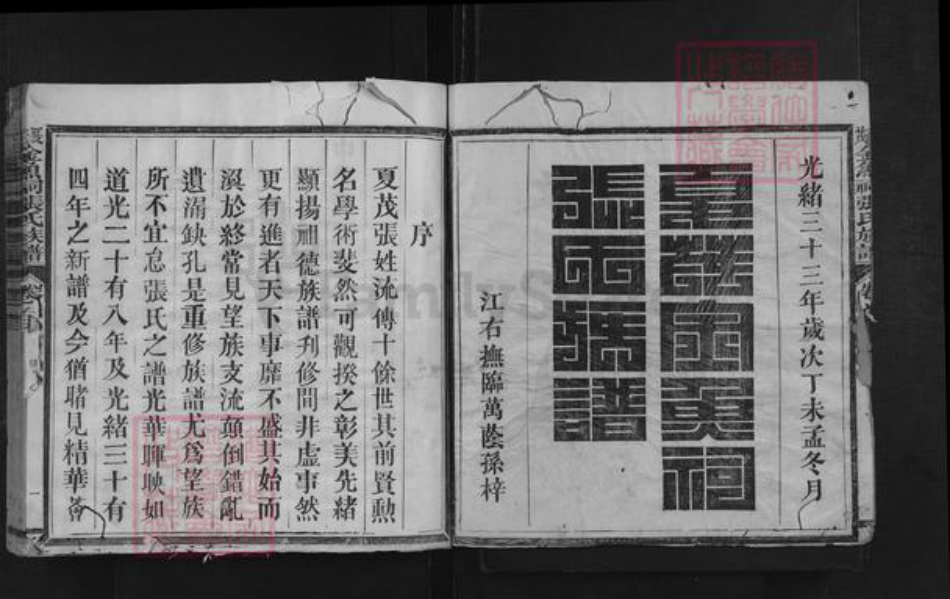 光緒三十三年歲次丁未孟冬月
祠
張氏族譜
江右撫臨萬蔭孫梓
序
夏茂張姓流傳十餘世其前賢勲
名學術斐然可觀揆之彰美先緒
顯揚祖德族譜刋修問非虛事然
更有進者天下事靡不盛其始而
渙於終常見望族支流顛倒錯亂
遺漏缺孔是重修族譜尤爲望族
所不宜怠張氏之譜光華暉映如
道光二十有八年及光緒三十有
四年之新譜及今猶睹見精華薈
魚祠張氏族譜
FamilySearch